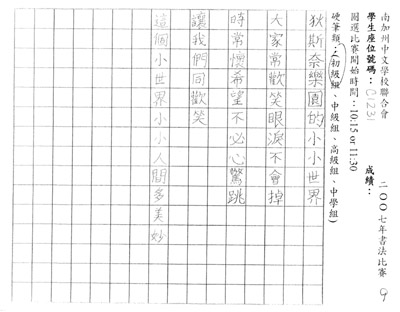 南加州中文學校聯合會　二〇〇七年書法比賽
學生座位號碼：C1231　成績：
圈選比賽開始時間：10:15 or 11:30
硬筆類：(初級組、中級組、高級組、中學組)
狄斯奈樂園的小小世界
大家常歡笑眼淚不會掉
時常懷希望不必心驚跳
讓我們同歡笑
這個小世界小小人間多美妙
9